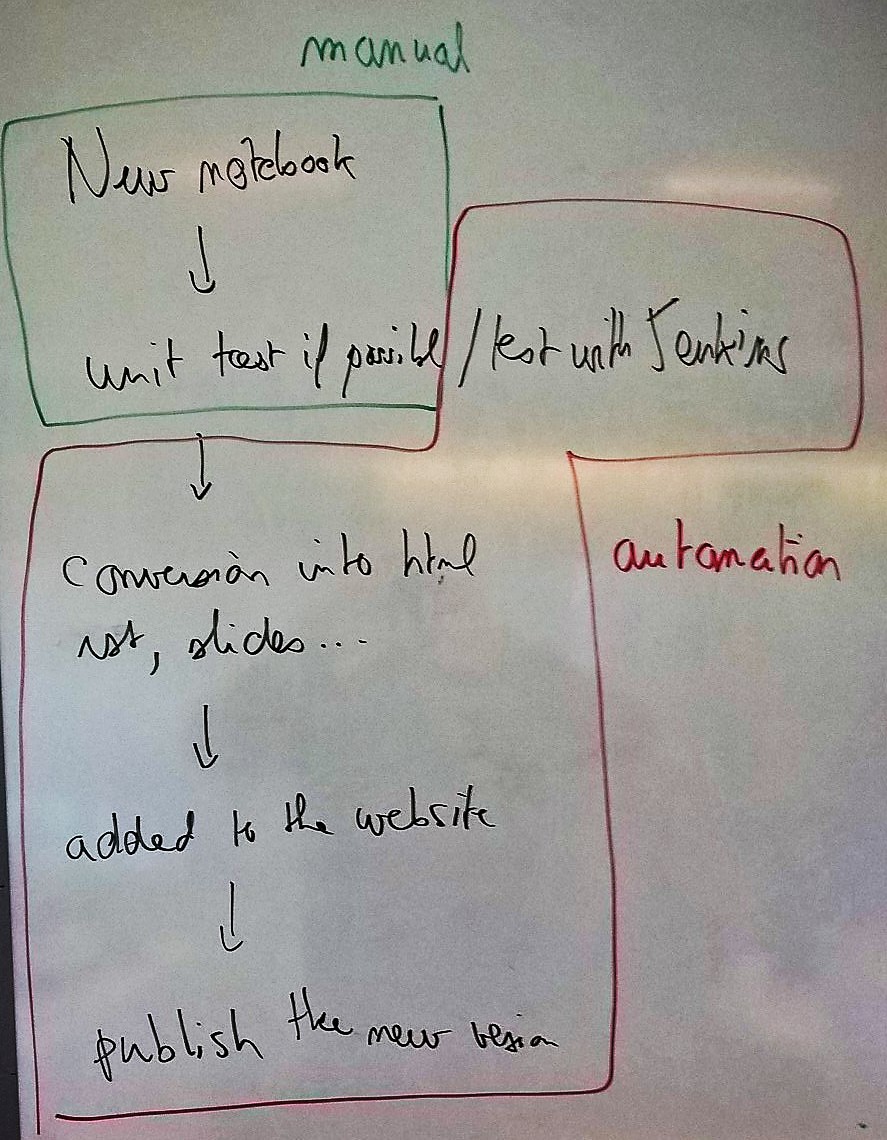 manual
New notebook
unit test if possible / test with Jenkins
automation
Conversion into html
rst, slides...
added to the website
publish the new version